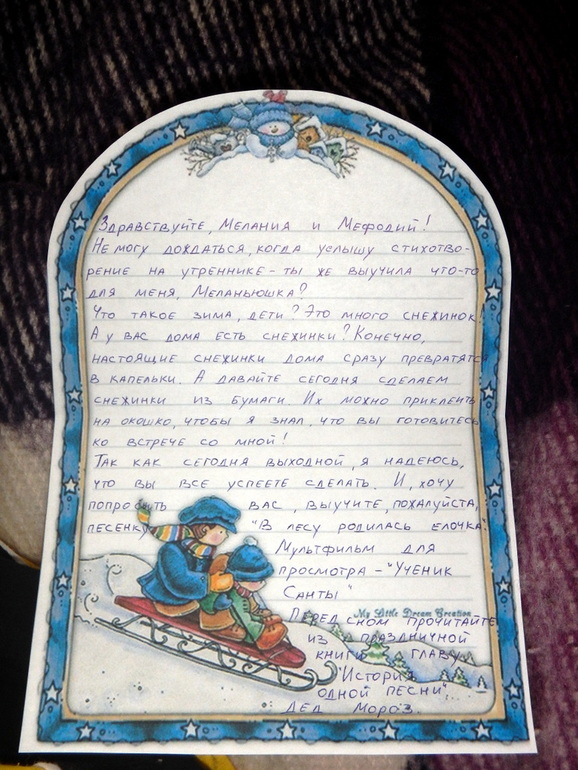 Здравствуйте, Мелания и Мефодий!
Не могу дождаться, когда услышу стихотво-
рение на утреннике - ты же выучила что-то
для меня, Меланьюшка?
Что такое зима, дети? Это много снежинок!
А у вас дома есть снежинки? Конечно,
настоящие снежинки дома сразу превратятся
в капельки. А давайте сегодня сделаем
снежинки из бумаги. Их можно приклеить
на окошко, чтобы я знал, что вы готовитесь
ко встрече со мной!
Так как сегодня выходной, я надеюсь,
что вы все успеете сделать. И, хочу
попросить вас, выучите, пожалуйста,
песенку "В лесу родилась елочка".
Мультфильм для
просмотра - "Ученик
Санты"
My Little Dream Creation
Перед сном прочитайте
из праздничной
книги главу
"История
одной песни".
Дед Мороз.